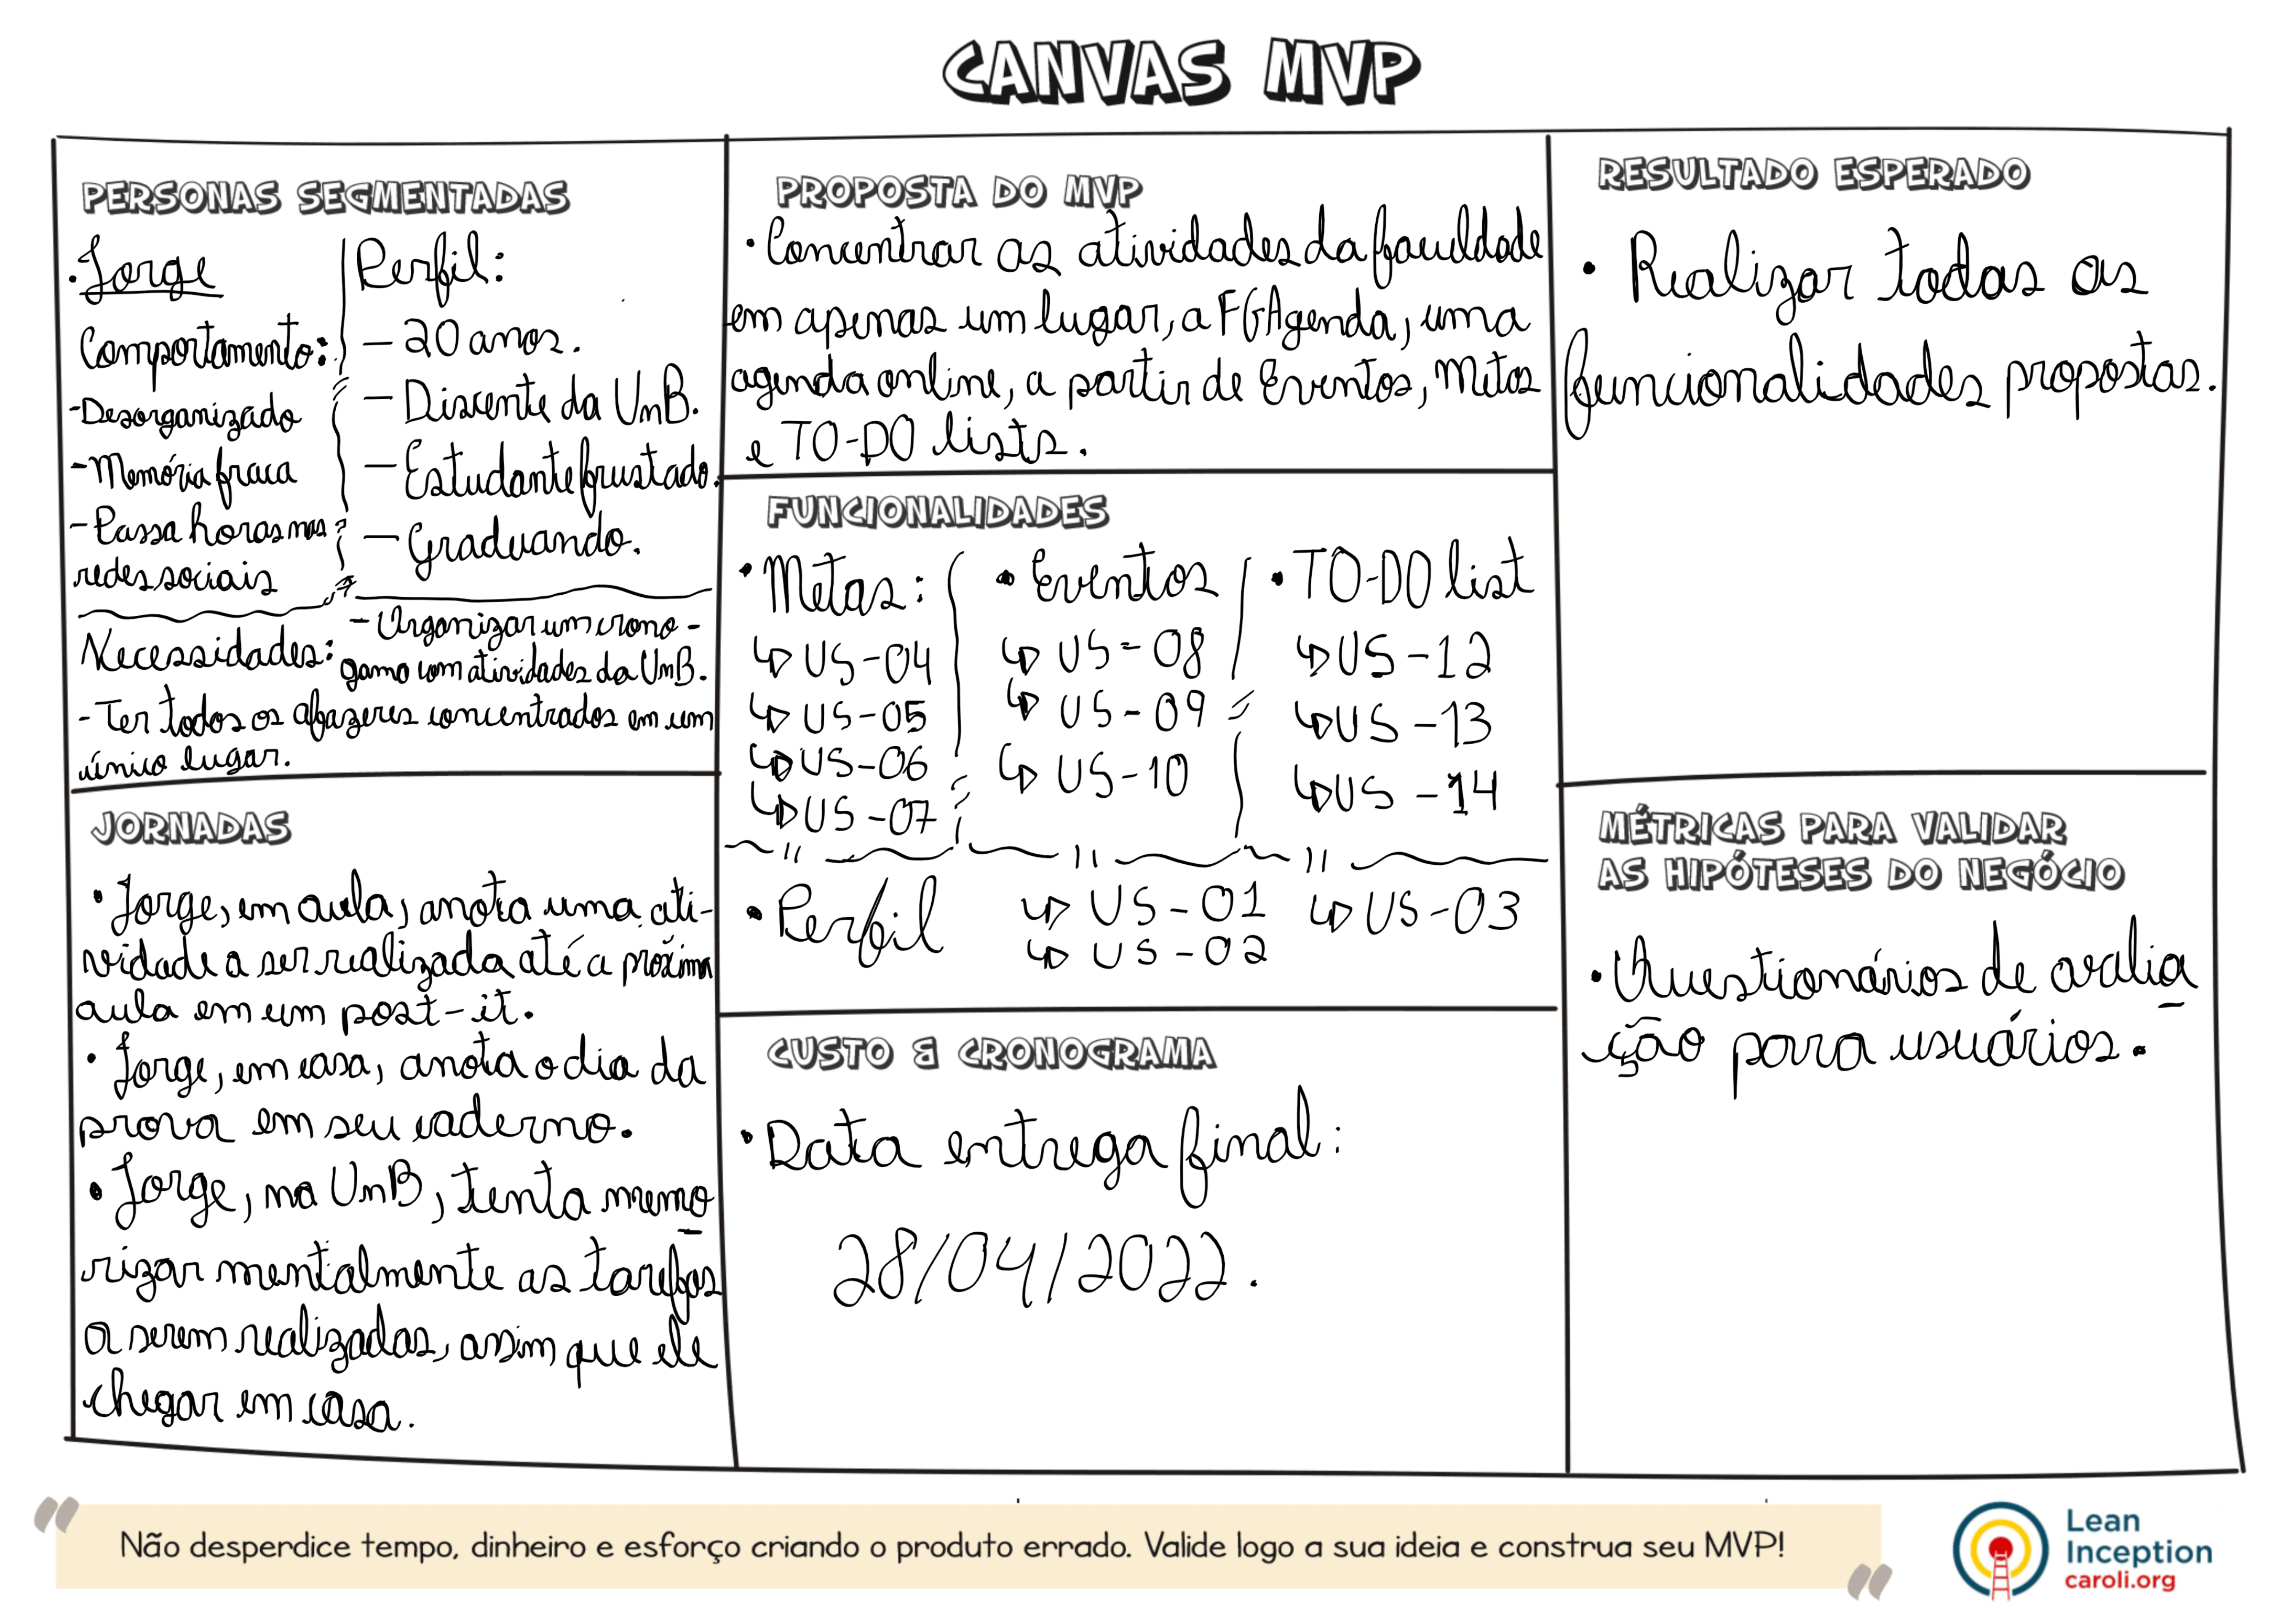 CANVAS MVP
PERSONAS SEGMENTADAS
• Jorge
Comportamento:
- Desorganizado
- Memória fraca
- Passa horas nas
redes sociais
Perfil:
- 20 anos.
- Discente da UnB.
- Estudante frustado.
- Graduando.
Necessidades:
- Organizar um crono-
gamo com atividades da UnB.
- Ter todos os afazeres concentrados em um
único lugar.
JORNADAS
• Jorge, em aula, anota uma ati-
vidade a ser realizada até a próxima
aula em um post-it.
• Jorge, em casa, anota o dia da
prova em seu caderno.
• Jorge, na UnB, tenta memo-
rizar mentalmente as tarefas
a serem realizadas, assim que ele
chegar em casa.
PROPOSTA DO MVP
• Concentrar as atividades da faculdade
em apenas um lugar, a FGAgenda, uma
agenda online, a partir de Eventos, Metas
e TO-DO lists.
FUNCIONALIDADES
• Metas:
↳ US-04
↳ US-05
↳ US-06
↳ US-07
• Eventos
↳ US-08
↳ US-09
↳ US-10
• TO-DO list
↳ US-12
↳ US-13
↳ US-14
• Perfil
↳ US-01
↳ US-02
↳ US-03
CUSTO & CRONOGRAMA
• Data entrega final:
28/04/2022.
RESULTADO ESPERADO
• Realizar todas as
funcionalidades propostas.
MÉTRICAS PARA VALIDAR
AS HIPÓTESES DO NEGÓCIO
• Questionários de avalia-
ção para usuários.
"Não desperdice tempo, dinheiro e esforço criando o produto errado. Valide logo a sua ideia e construa seu MVP!"
Lean
Inception
caroli.org